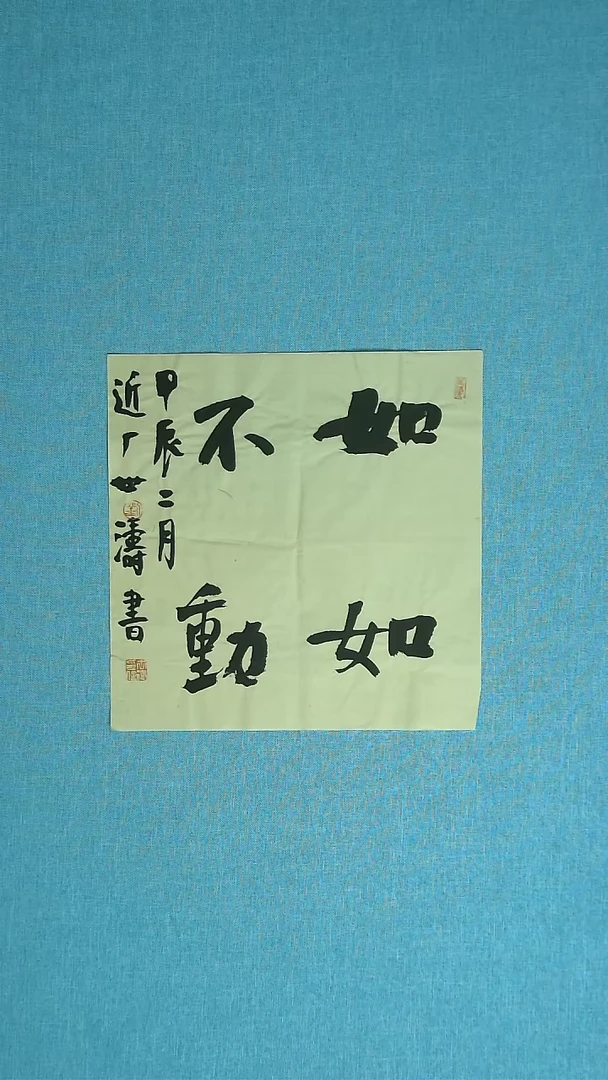 如如
不動
甲辰二月
近厂世濤書